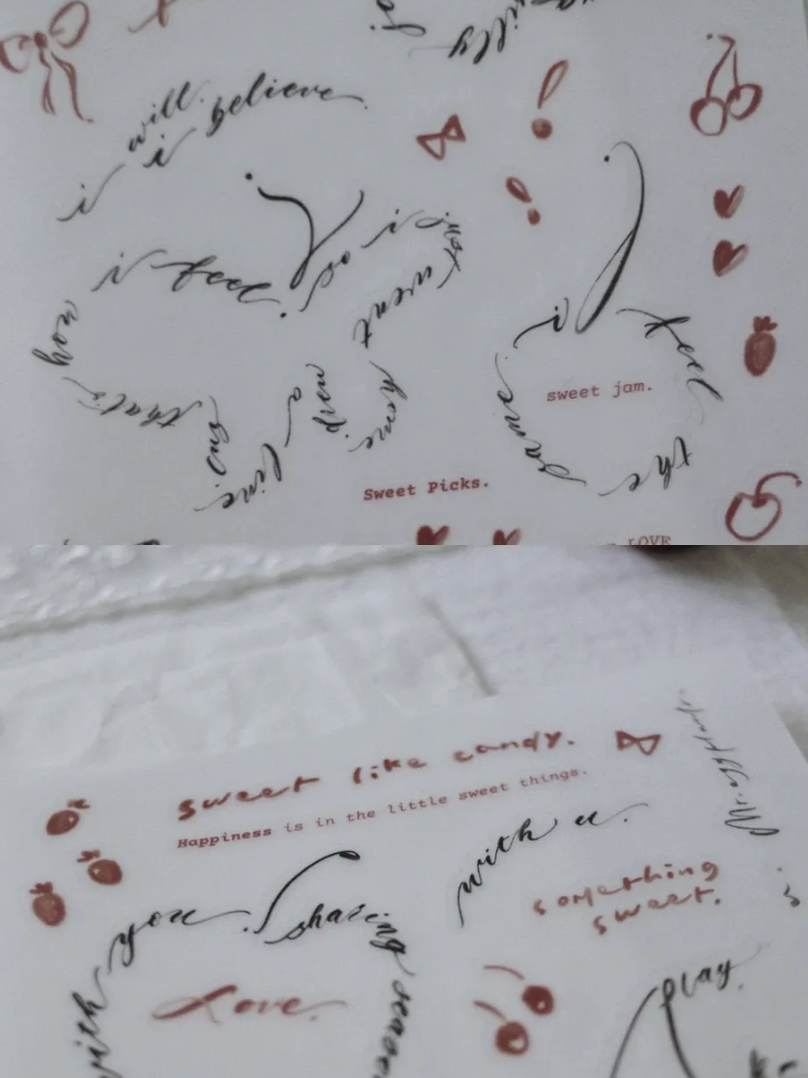 i will. i believe
i feel.
so i
not want
you
that's
me.
line
a
gone.
i feel the same
sweet jam.
Sweet Picks.
LOVE
sweet like candy.
Happiness is in the little sweet things.
with u.
something
sweet.
you
sharing
with
Love.
play.